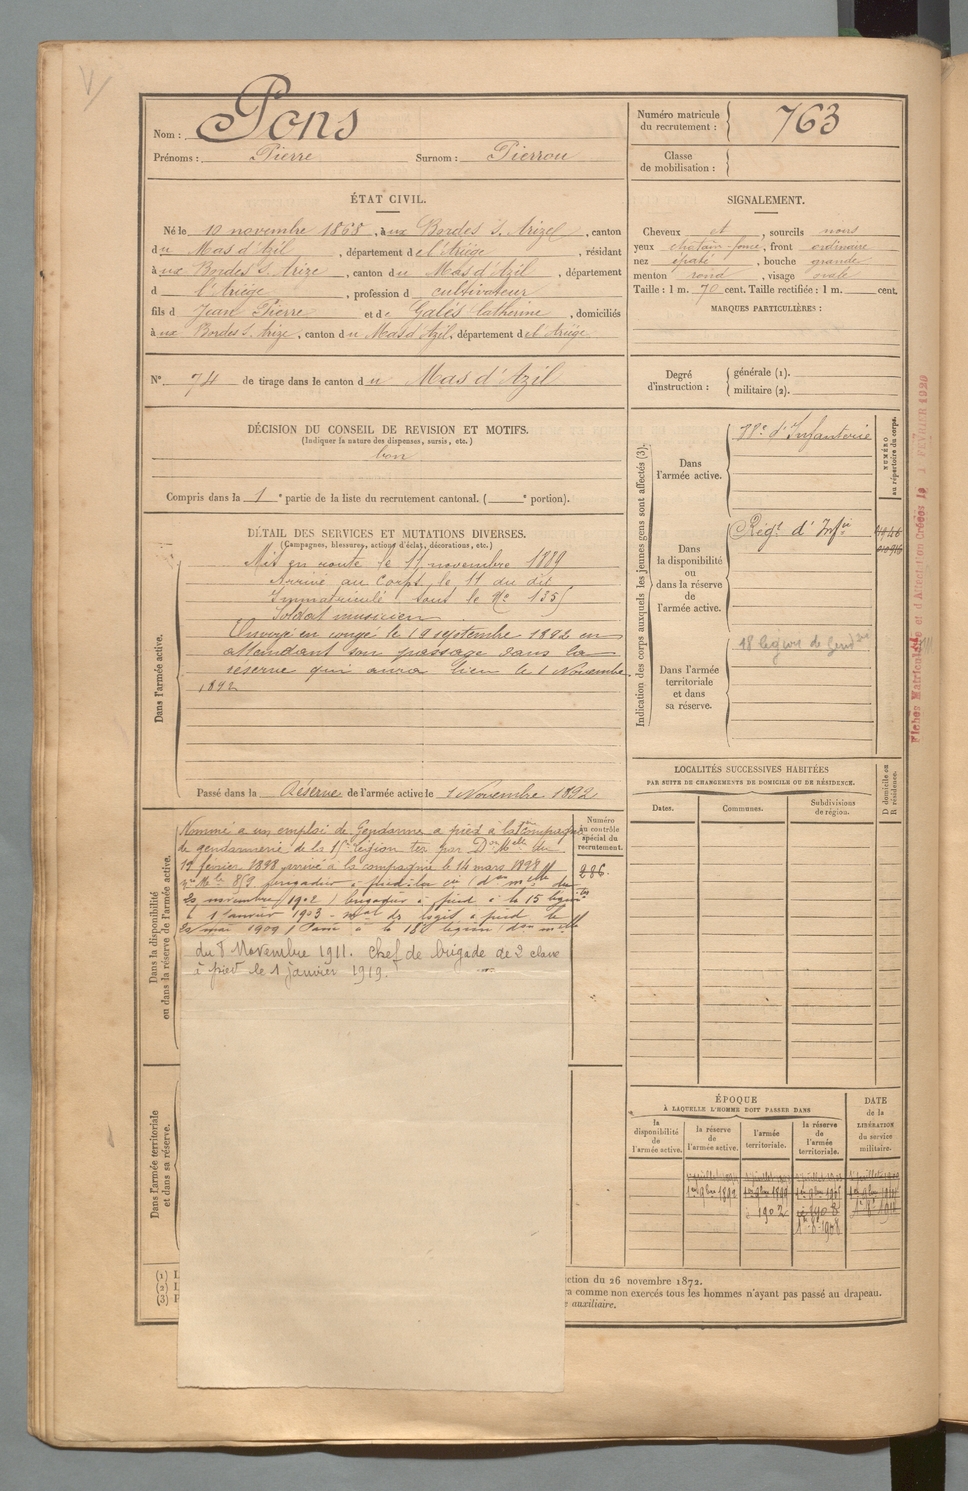 Nom : Pons
Prénoms : Pierre Surnom : Pierrou
Numéro matricule du recrutement : 763
Classe de mobilisation :
ÉTAT CIVIL.
Né le 10 novembre 1868, à ux Bordes s. Arize, canton
du Mas d'Azil, département de l'Ariège, résidant
à ux Bordes s. Arize, canton du Mas d'Azil, département
d l'Ariège, profession d cultivateur
fils d Jean Pierre et de Galés Catherine, domiciliés
à ux Bordes s. Arize, canton du Mas d'Azil, département de l'Ariège
N° 74 de tirage dans le canton du Mas d'Azil
SIGNALEMENT.
Cheveux et, sourcils noirs
yeux, front ordinaire
nez épaté, bouche grande
menton rond, visage ovale
Taille : 1 m. 70 cent. Taille rectifiée : 1 m. cent.
MARQUES PARTICULIÈRES :
Degré d'instruction : générale (1).
militaire (2).
DÉCISION DU CONSEIL DE REVISION ET MOTIFS.
(Indiquer la nature des dispenses, sursis, etc.)
bon
Compris dans la 1e partie de la liste du recrutement cantonal. ( e portion).
DÉTAIL DES SERVICES ET MUTATIONS DIVERSES.
(Campagnes, blessures, actions d'éclat, décorations, etc.)
Dans l'armée active.
Mis en route le 11 novembre 1889
Arrivé au Corps le 11 du dit
Immatriculé sous le No
Soldat musicien
Envoyé en congé le 19 septembre 1892 en
attendant son passage dans la
réserve qui aura lieu le 1 Novembre
1892
Passé dans la Réserve de l'armée active le 1 Novembre 1892
Indication des corps auxquels les jeunes gens sont affectés (3).
Dans l'armée active.
d'Infanterie
Dans la disponibilité ou dans la réserve de l'armée active.
Régt d'Infie
Dans l'armée territoriale et dans sa réserve.
18 légion de
NUMÉRO au répertoire du corps.
Fiches Matriculaire et d'Affectation Créées le FÉVRIER 1920
LOCALITÉS SUCCESSIVES HABITÉES
PAR SUITE DE CHANGEMENTS DE DOMICILE OU DE RÉSIDENCE.
D domicile ou R résidence.
Dates. Communes. Subdivisions de région.
Dans la disponibilité ou dans la réserve de l'armée active.
Numéro au contrôle spécial du recrutement.
286.
Nommé a un emploi de Gendarme a pied à la compagnie
de gendarmerie de la 15e légion par Don Melle du
19 février 1898 arrivé à la compagnie le 14 mars 1898
brigadier à pied
22 novembre 1902 brigadier à pied à la 15 légion
le 1 Janvier 1903 - mal de logis à pied le
22 mai 1909 Passé à la 18e légion don melle
du 8 Novembre 1911. Chef de brigade de 2 classe
à pied le 1 janvier 1919.
Dans l'armée territoriale et dans sa réserve.
ÉPOQUE
À LAQUELLE L'HOMME DOIT PASSER DANS
la disponibilité de l'armée active.
la réserve de l'armée active.
l'armée territoriale.
la réserve de l'armée territoriale.
DATE de la LIBÉRATION du service militaire.
1er 9bre 1892
1er 9bre 1899
1902
1908
(1) I
(2) I
(3) P
ction du 26 novembre 1872.
ra comme non exercés tous les hommes n'ayant pas passé au drapeau.
e auxiliaire.